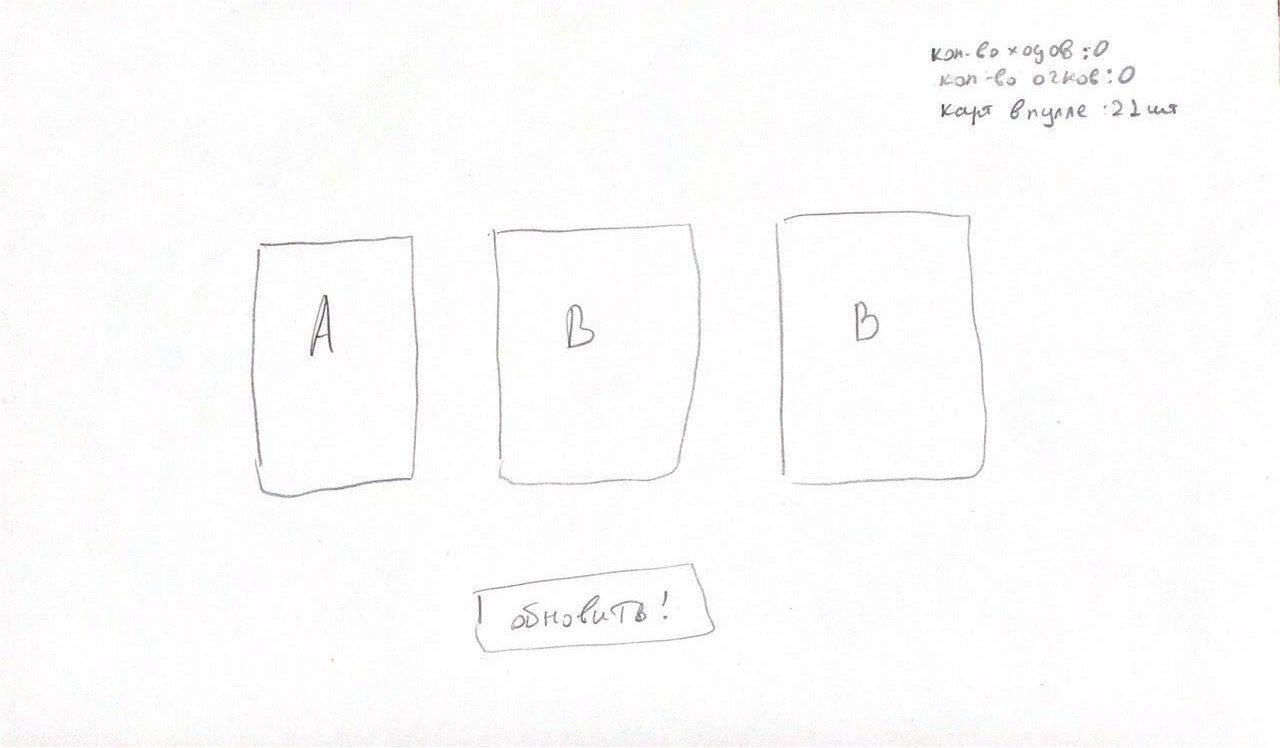 кол-во ходов : 0
кол-во очков : 0
карт в пулле : 21 шт
A
B
B
обновить!